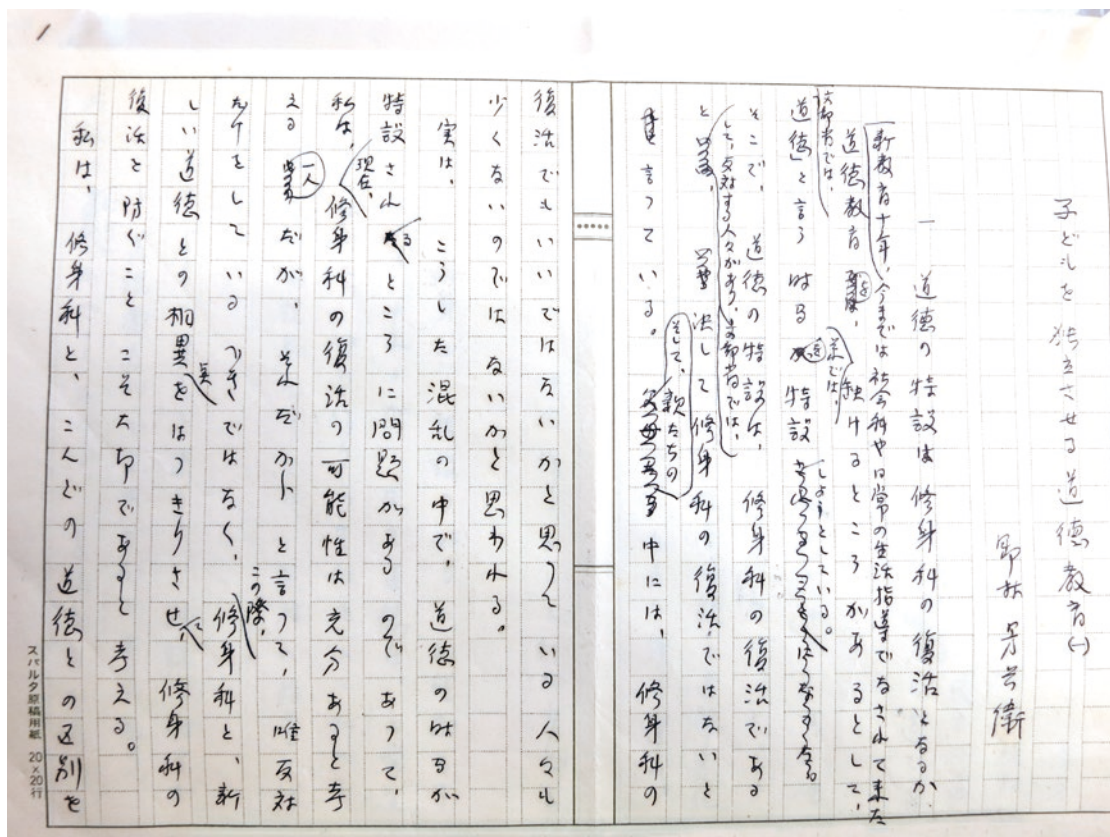 1
子どもを独立させる道徳教育(一)
野村芳兵衛
一 道徳の特設は修身科の復活となるか
新教育十年、今までは社会科や日常の生活指導までなされて来た
道徳教育を、それでは、抜けるところがあるとして、
文部省では、
道徳」と言う時間を特設しようとしている。
そこで、道徳の特設は、修身科の復活である
として、反対する人々があり、文部省では、
決して修身科の復活ではないと
言っている。そして、親たちの中には、修身科の
復活でもいいではないかと思っている人々も
少くないのではないかと思われる。
実は、こうした混乱の中で、道徳の時間が
特設されるところに問題があるのであって、
私は、現在、修身科の復活の可能性は充分あると考
える一人だが、そんだからと言って、唯反対
だけをしているべきではなく、この際、修身科と、新
しい道徳との相異をはっきりさせて、修身科の
復活を防ぐことこそ大切であると考える。
私は、修身科と、こんどの道徳との区別を
スバルタ原稿用紙 20×20行